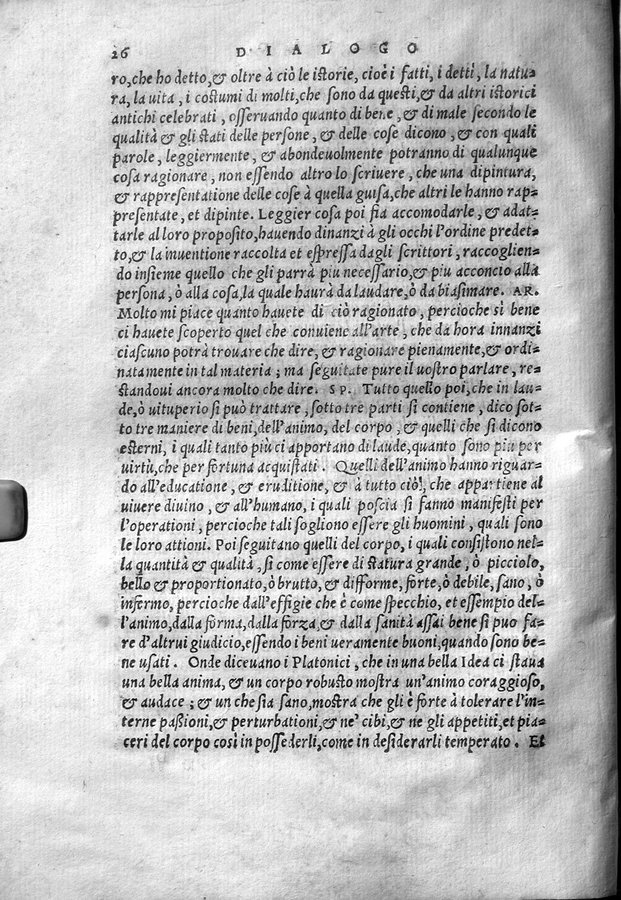 26 DIALOGO
ro, che ho detto, & oltre à ciò le istorie, cioè i fatti, i detti, la natu=
ra, la uita, i costumi di molti, che sono da questi, & da altri istorici
antichi celebrati, osseruando quanto di bene, & di male secondo le
qualità & gli stati delle persone, & delle cose dicono, & con quali
parole, leggiermente, & abondeuolmente potranno di qualunque
cosa ragionare, non essendo altro lo scriuere, che una dipintura,
& rappresentatione delle cose à quella guisa, che altri le hanno rap=
presentate, et dipinte. Leggier cosa poi fia accomodarle, & adat=
tarle al loro proposito, hauendo dinanzi à gli occhi l'ordine predet=
to, & la inuentione raccolta et espressa dagli scrittori, raccoglien=
do insieme quello che gli parrà piu necessario, & piu acconcio alla
persona, ò alla cosa, la quale haurà da laudare, ò da biasimare. AR.
Molto mi piace quanto hauete di ciò ragionato, percioche si bene
ci hauete scoperto quel che conuiene all'arte, che da hora innanzi
ciascuno potrà trouare che dire, & ragionare pienamente, & ordi=
natamente in tal materia; ma seguitate pure il uostro parlare, re=
standoui ancora molto che dire. SP. Tutto quello poi, che in lau=
de, ò uituperio si può trattare, sotto tre parti si contiene, dico sot=
to tre maniere di beni, dell'animo, del corpo, & quelli che si dicono
esterni, i quali tanto più ci apportano di laude, quanto sono più per
uirtù, che per fortuna acquistati. Quelli dell'animo hanno riguar=
do all'educatione, & eruditione, & à tutto ciò, che appartiene al
uiuere diuino, & all'humano, i quali poscia si fanno manifesti per
l'operationi, percioche tali sogliono essere gli huomini, quali sono
le loro attioni. Poi seguitano quelli del corpo, i quali consistono nel=
la quantità & qualità, si come essere di statura grande, ò picciolo,
bello & proportionato, ò brutto, & difforme, forte, ò debile, sano, ò
infermo, percioche dall'effigie che è come specchio, et essempio del=
l'animo, dalla forma, dalla forza, & dalla sanità assai bene si puo fa=
re d'altrui giudicio, essendo i beni ueramente buoni, quando sono be=
ne usati. Onde diceuano i Platonici, che in una bella Idea ci staua
una bella anima, & un corpo robusto mostra un'animo coraggioso,
& audace; & un che sia sano, mostra che gli è forte à tolerare l'in=
terne passioni, & perturbationi, & ne' cibi, & ne gli appetiti, et pia=
ceri del corpo così in possederli, come in desiderarli temperato. Et